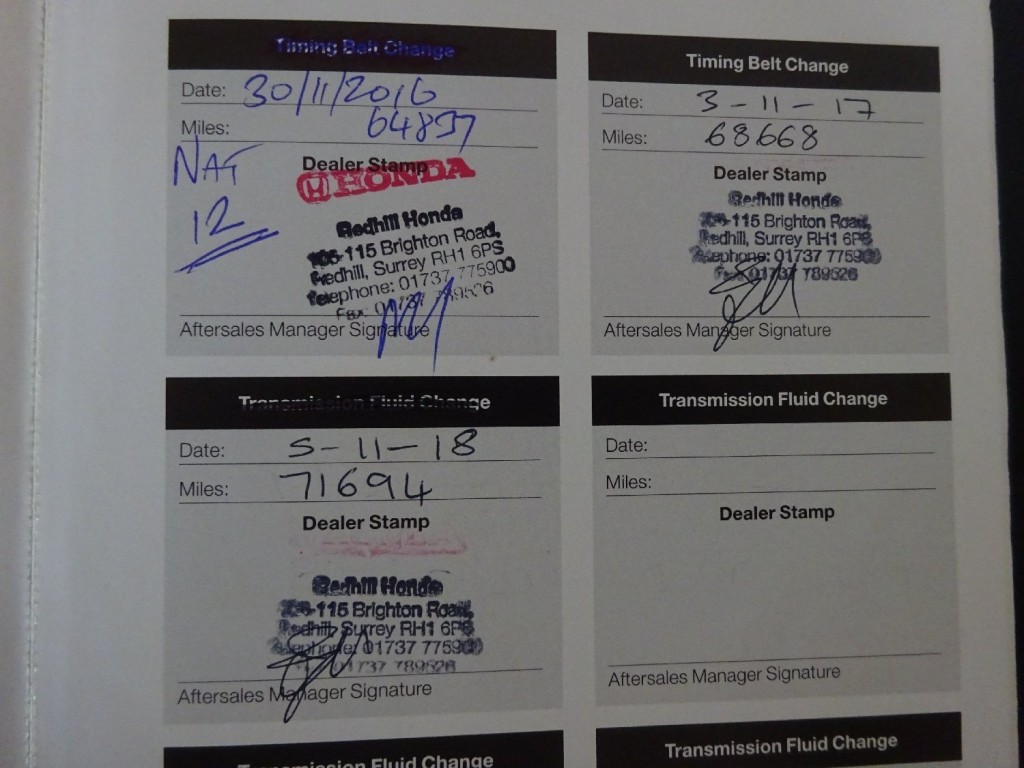 Timing Belt Change
Date: 30/11/2016
Miles: 64897
NAT
12
Dealer Stamp
HONDA
Redhill Honda
106-115 Brighton Road,
Redhill, Surrey RH1 6PS
Telephone: 01737 775900
Fax: 01737 789526
Aftersales Manager Signature
Timing Belt Change
Date: 3-11-17
Miles: 68668
Dealer Stamp
Redhill Honda
115 Brighton Road,
Redhill, Surrey RH1 6PS
Telephone: 01737 775900
Fax: 01737 789526
Aftersales Manager Signature
Transmission Fluid Change
Date: 5-11-18
Miles: 71694
Dealer Stamp
Redhill Honda
115 Brighton Road,
Redhill, Surrey RH1 6PS
Telephone: 01737 775900
01737 789526
Aftersales Manager Signature
Transmission Fluid Change
Date:
Miles:
Dealer Stamp
Aftersales Manager Signature
Transmission Fluid Change
Transmission Fluid Change